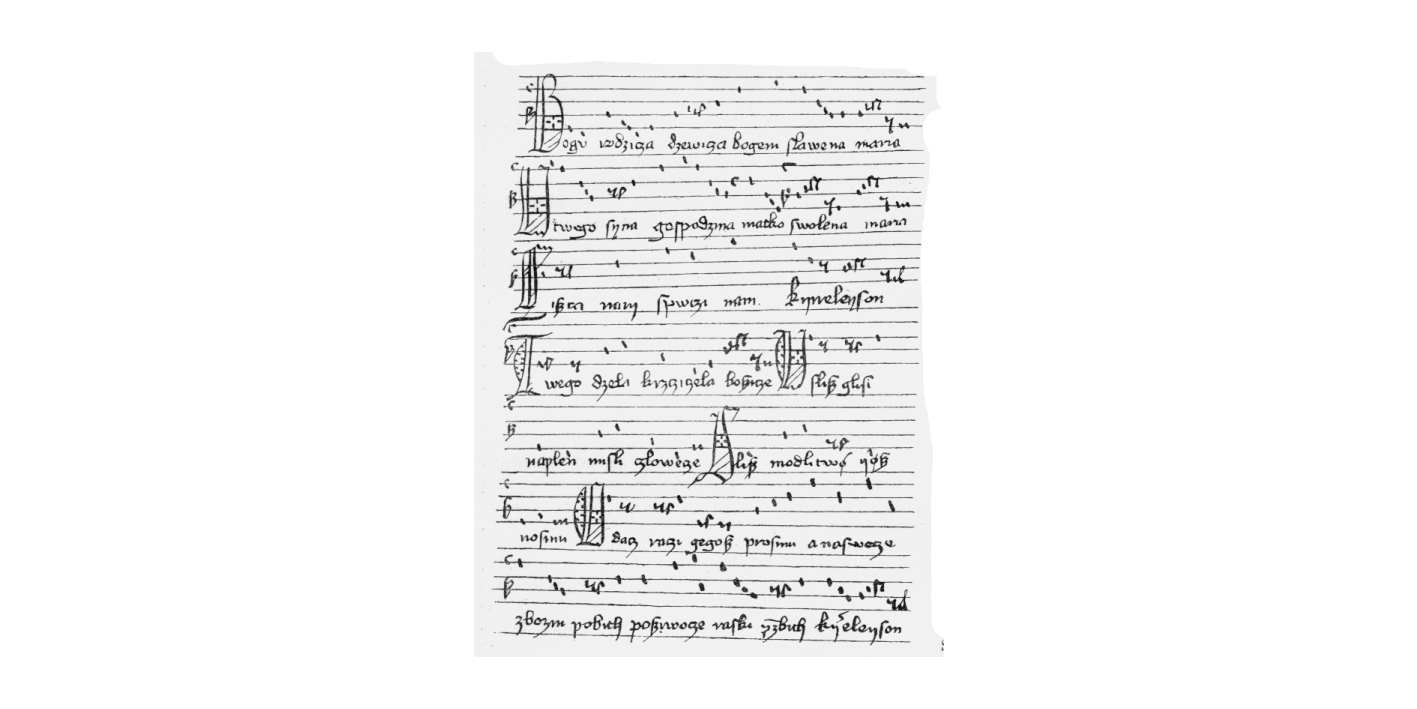 Bogu rodzicza dzewicza bogem slawena maria
U twego syna gospodzina matko swolena maria
siszczi nam spwczi nam. kyrieleyson
Twego dzela krzcziczela boszicze Uslisz glosi
naplen misli czlowecze Slisz modlitwø yøsz
nosimi Oddacz raczi gegosz prosimi a naswecze
zbozni pobith poszywocze raski przebith kyrieleyson